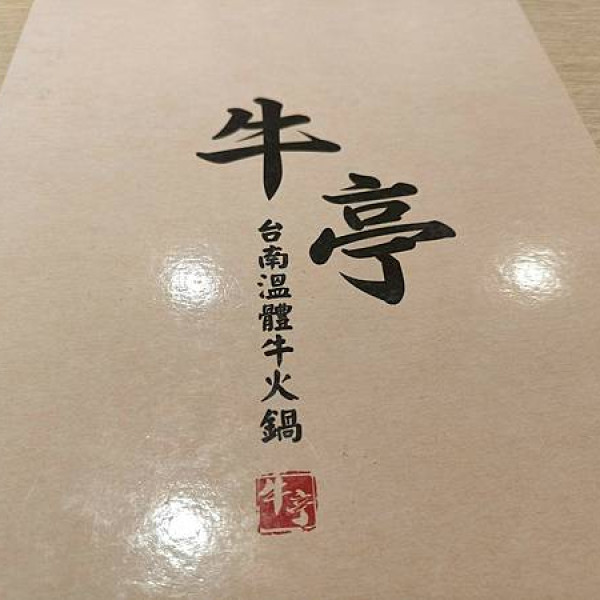 牛亭
台南溫體牛火鍋
牛亭